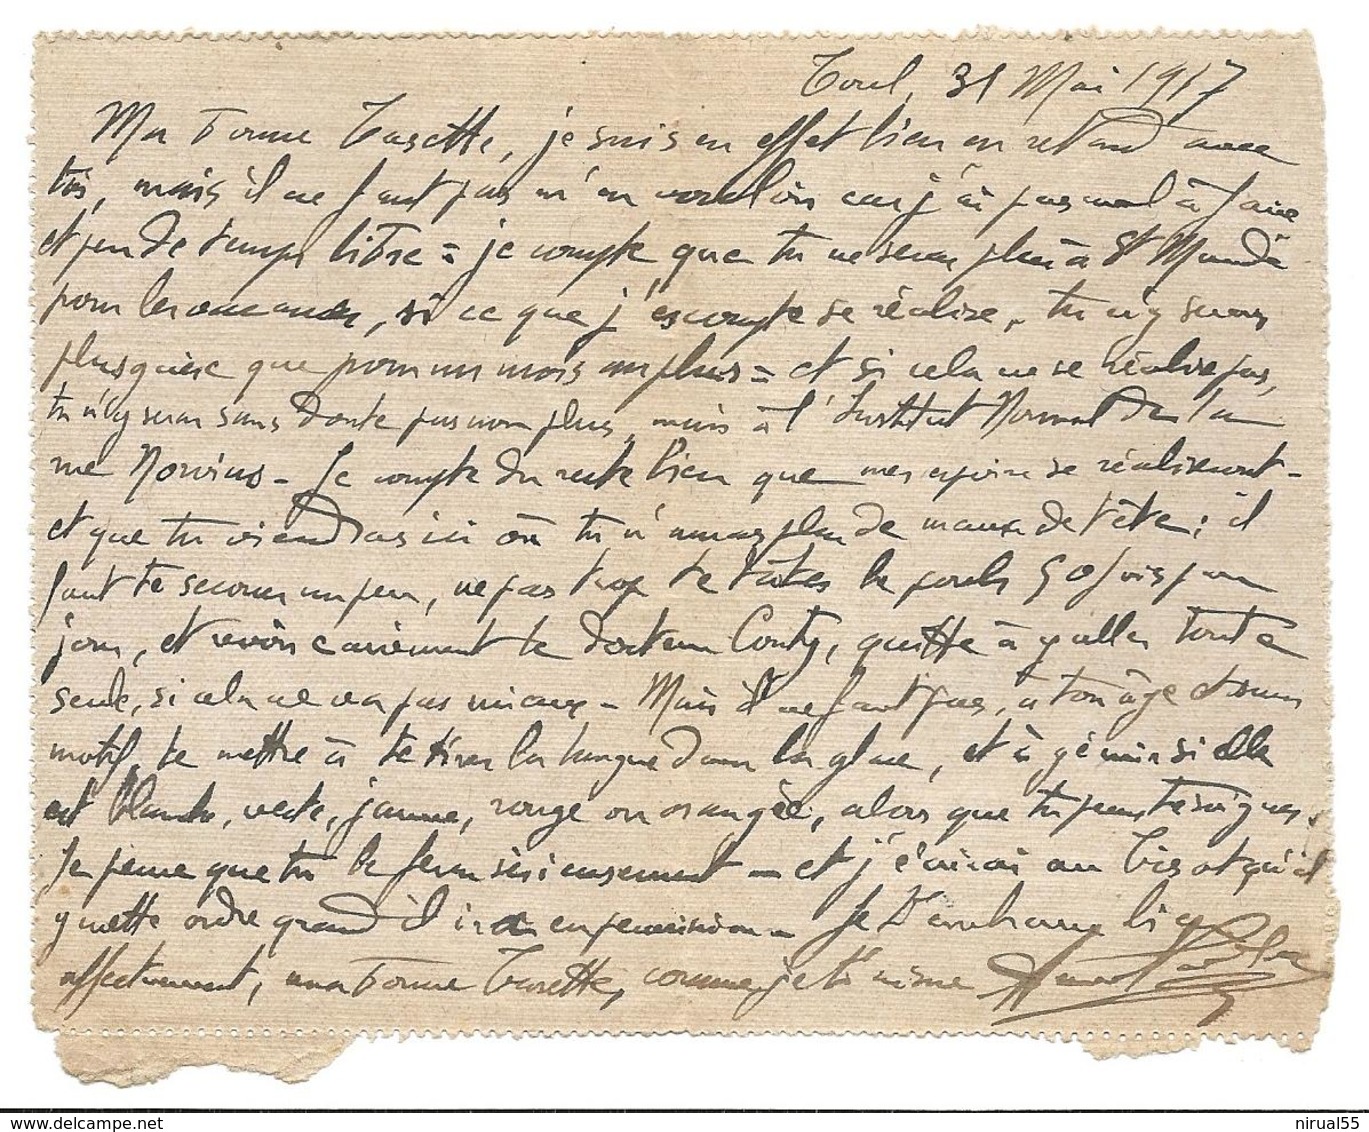 Toul, 31 Mai 1917
Ma bonne Zuzette, je suis en effet bien en retard avec
toi, mais il ne faut pas m'en vouloir car j'ai pas mal à faire
et peu de temps libre = je compte que tu ne seras plus à St Mandé
pour les vacances, si ce que j'escompte se réalise, tu n'y seras
plus guère que pour un mois au plus = et si cela ne se réalise pas,
tu n'y seras sans doute pas non plus, mais à l'Institut Normal de la
rue Norvins - Je compte du reste bien que mes espoirs se réaliseront -
et que tu viendras ici où tu n'auras plus de maux de tête ; il
faut te secouer un peu, ne pas trop te tâter le pouls 50 fois par
jour, et revoir carrément le docteur Conty, quitte à y aller toute
seule, si cela ne va pas mieux - Mais il ne faut pas, à ton âge et sans
motif, te mettre à te tirer la langue dans la glace, et à gémir si elle
est blanche, verte, jaune, rouge ou orangée, alors que tu peux te soigner.
Je pense que tu le feras sérieusement - et j'écrirai au qu'il
y mette ordre quand il ira en permission - Je t'embrasse bien
affectueusement, ma bonne Zuzette, comme je t'aime